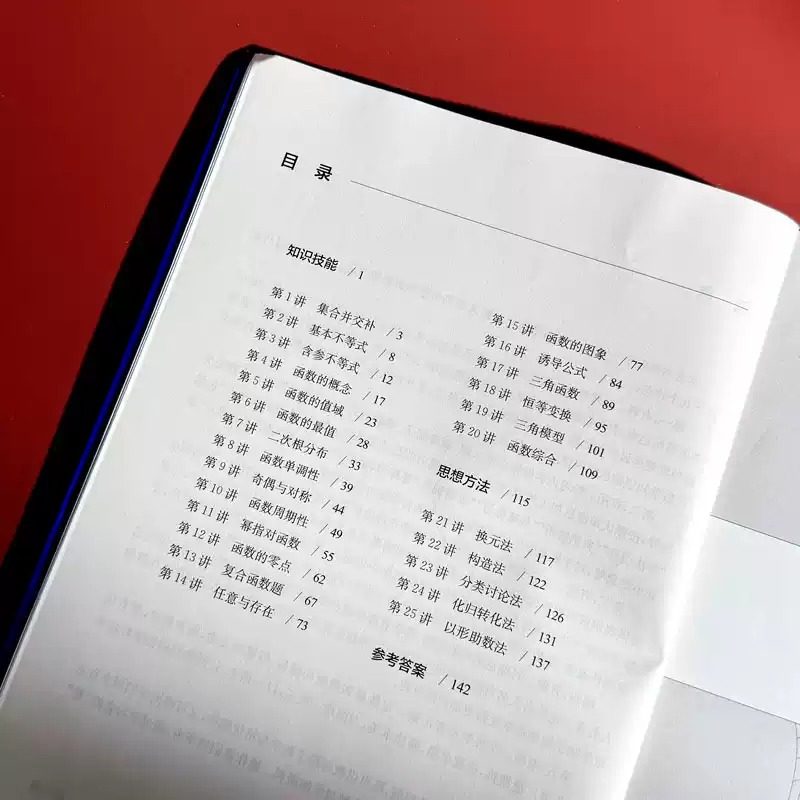 目 录
知识技能 / 1
第 1 讲 集合并交补 / 3
第 2 讲 基本不等式 / 8
第 3 讲 含参不等式 / 12
第 4 讲 函数的概念 / 17
第 5 讲 函数的值域 / 23
第 6 讲 函数的最值 / 28
第 7 讲 二次根分布 / 33
第 8 讲 函数单调性 / 39
第 9 讲 奇偶与对称 / 44
第 10 讲 函数周期性 / 49
第 11 讲 幂指对函数 / 55
第 12 讲 函数的零点 / 62
第 13 讲 复合函数题 / 67
第 14 讲 任意与存在 / 73
第 15 讲 函数的图象 / 77
第 16 讲 诱导公式 / 84
第 17 讲 三角函数 / 89
第 18 讲 恒等变换 / 95
第 19 讲 三角模型 / 101
第 20 讲 函数综合 / 109
思想方法 / 115
第 21 讲 换元法 / 117
第 22 讲 构造法 / 122
第 23 讲 分类讨论法 / 126
第 24 讲 化归转化法 / 131
第 25 讲 以形助数法 / 137
参考答案 / 142